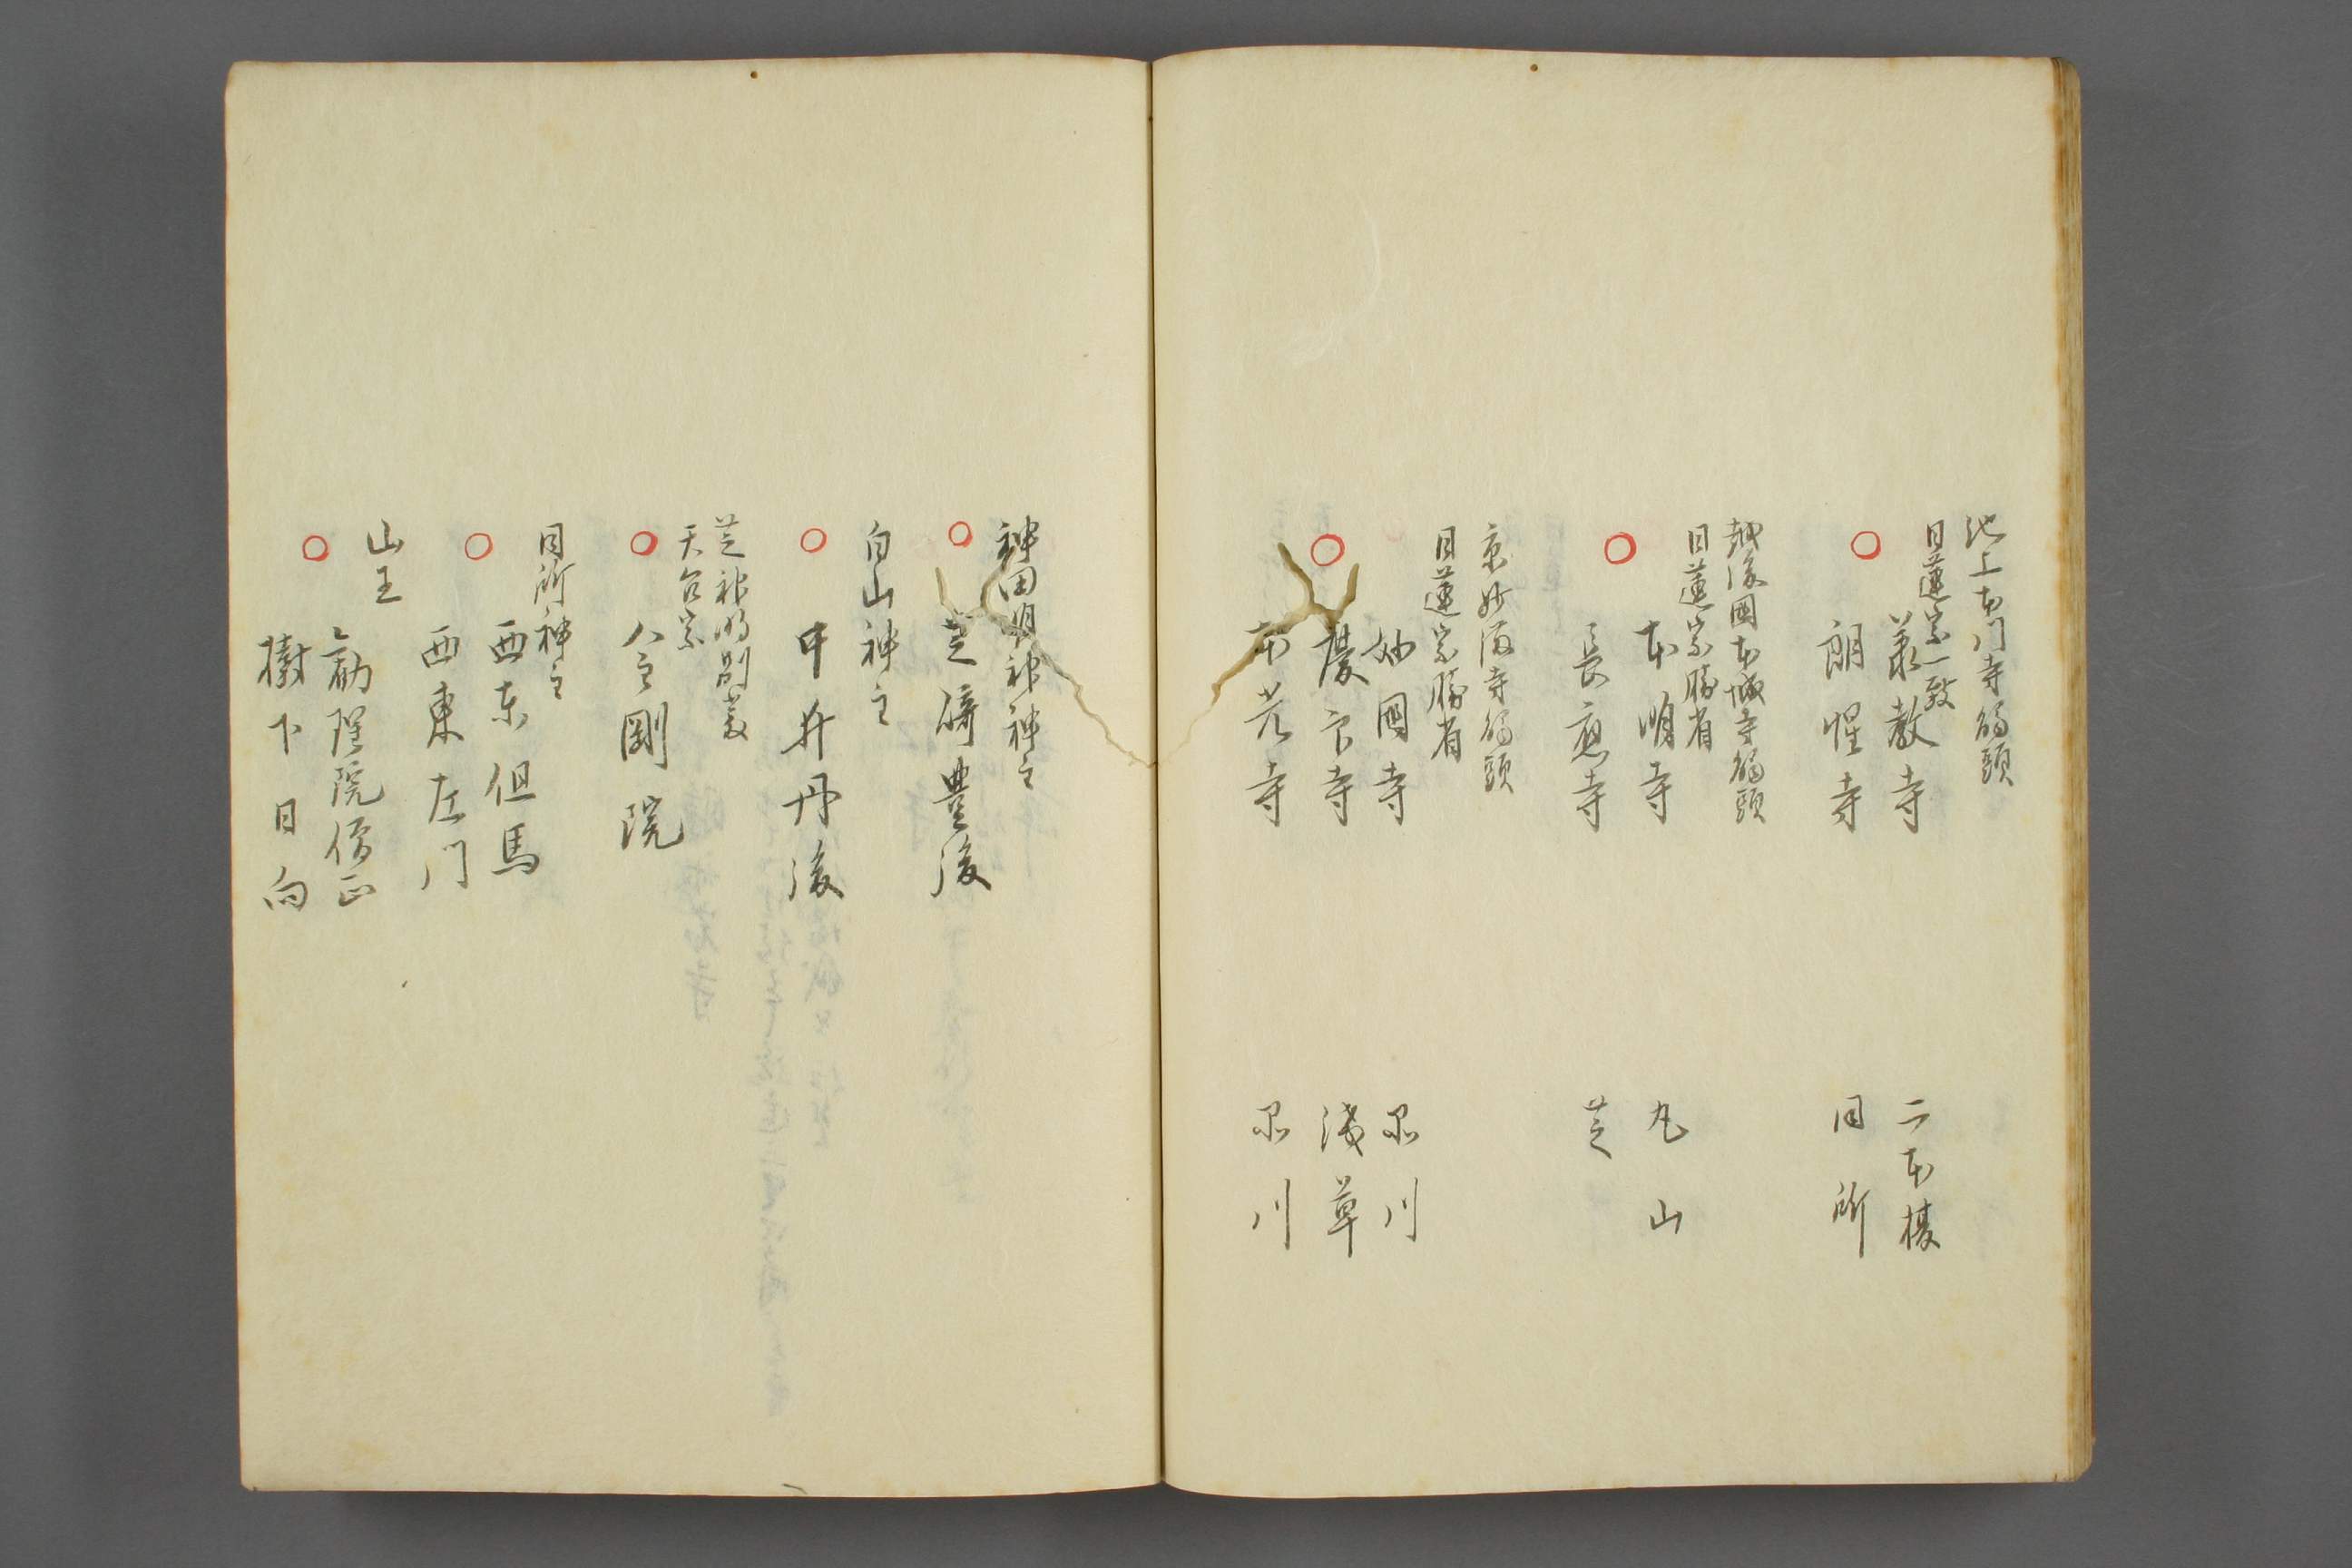 池上本門寺觸頭
日蓮宗一致
承教寺
二本榎
朗惺寺
同所
越後國本成寺觸頭
日蓮宗勝劣
本明寺
丸山
長應寺
芝
京妙満寺觸頭
日蓮宗勝劣
妙國寺
品川
慶印寺
浅草
本光寺
品川
神田明神神主
芝崎豊後
白山神主
中井丹後
芝神明別当
天台宗
金剛院
同所神主
西東但馬
西東左門
山王
勧理院僧正
樹下日向